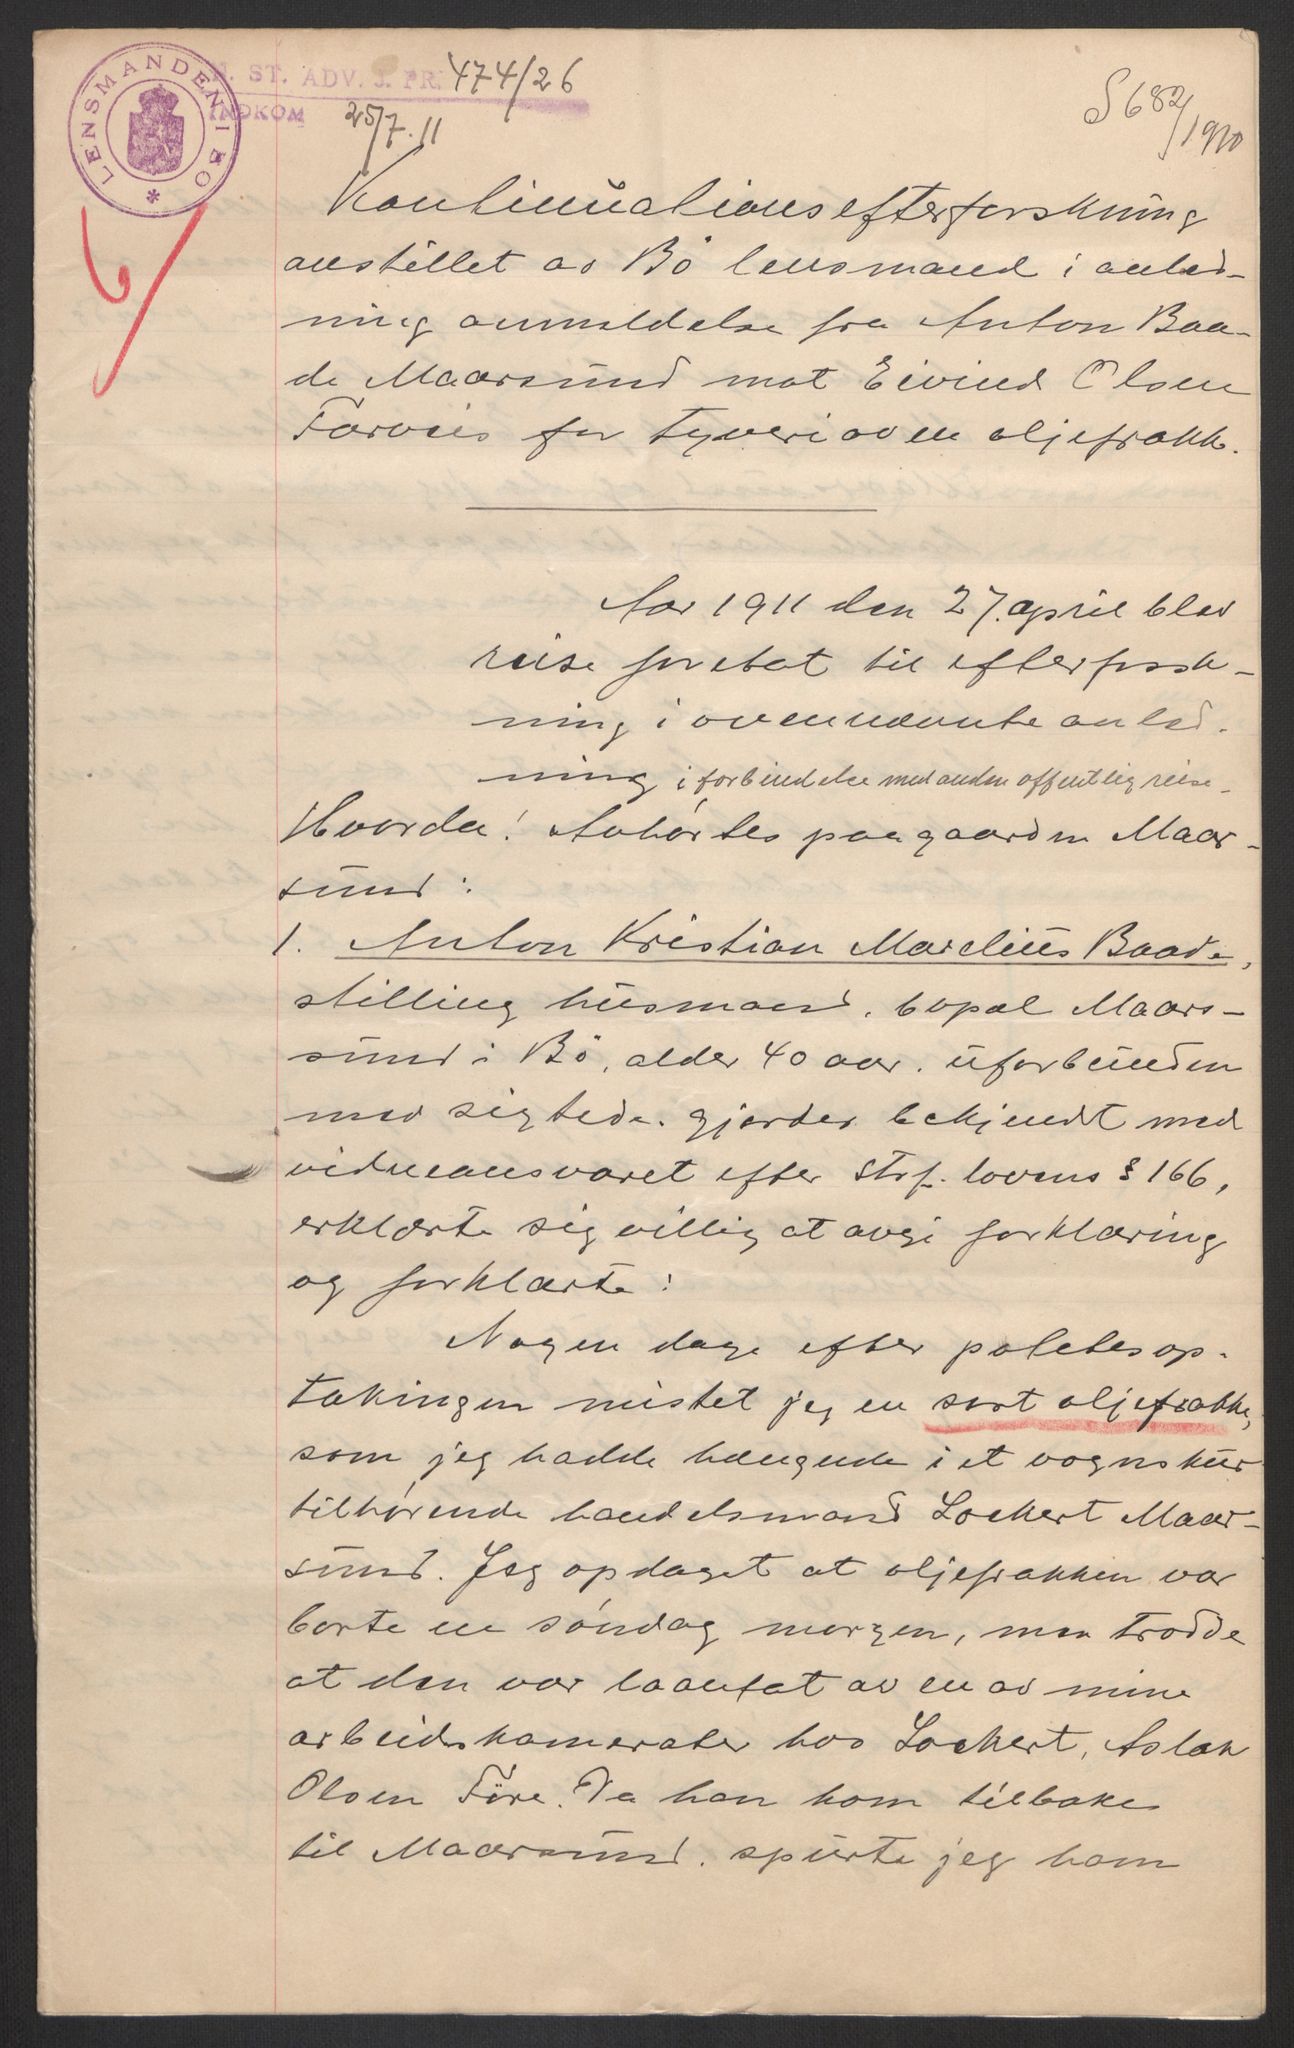 LENSMANDEN I BØ
ST. ADV. J. NR. 474/26
INDKOM 25/7.11
S 682/1910
6/
Kontinuationsefterforskning
anstillet av Bö lensmand i anled-
ning anmeldelse fra Anton Baa-
de Maarsund mot Eivind Olsen
for tyveri av en oljefrakk.
Aar 1911 den 27. april blev
reise foretat til efterforsk-
ning i ovennævnte anled-
ning i forbindelse med anden offentlig reise.
Hvorda! Avhørtes paa gaarden Maar-
sund:
1. Anton Kristian Marelius Baade,
stilling husmand, bopæl Maar-
sund i Bö, alder 40 aar. uforbunden
med sigtede. gjordes bekjendt med
vidneansvaret efter strf. lovens § 166,
erklærte sig villig at avgi forklaring
og forklarte:
Nogen dage efter potetesop-
takingen mistet jeg en sort oljefrakke,
som jeg hadde hængende i et vognskur
tilhørende handelsmand Lockert Maar-
sund. Jeg opdaget at oljefrakken var
borte en søndag morgen, men trodde
at den var laantat av en av mine
arbeidskamerater hos Lockert, Aslak
Olsen Före. Da han kom tilbake
til Maarsund. spurte jeg ham